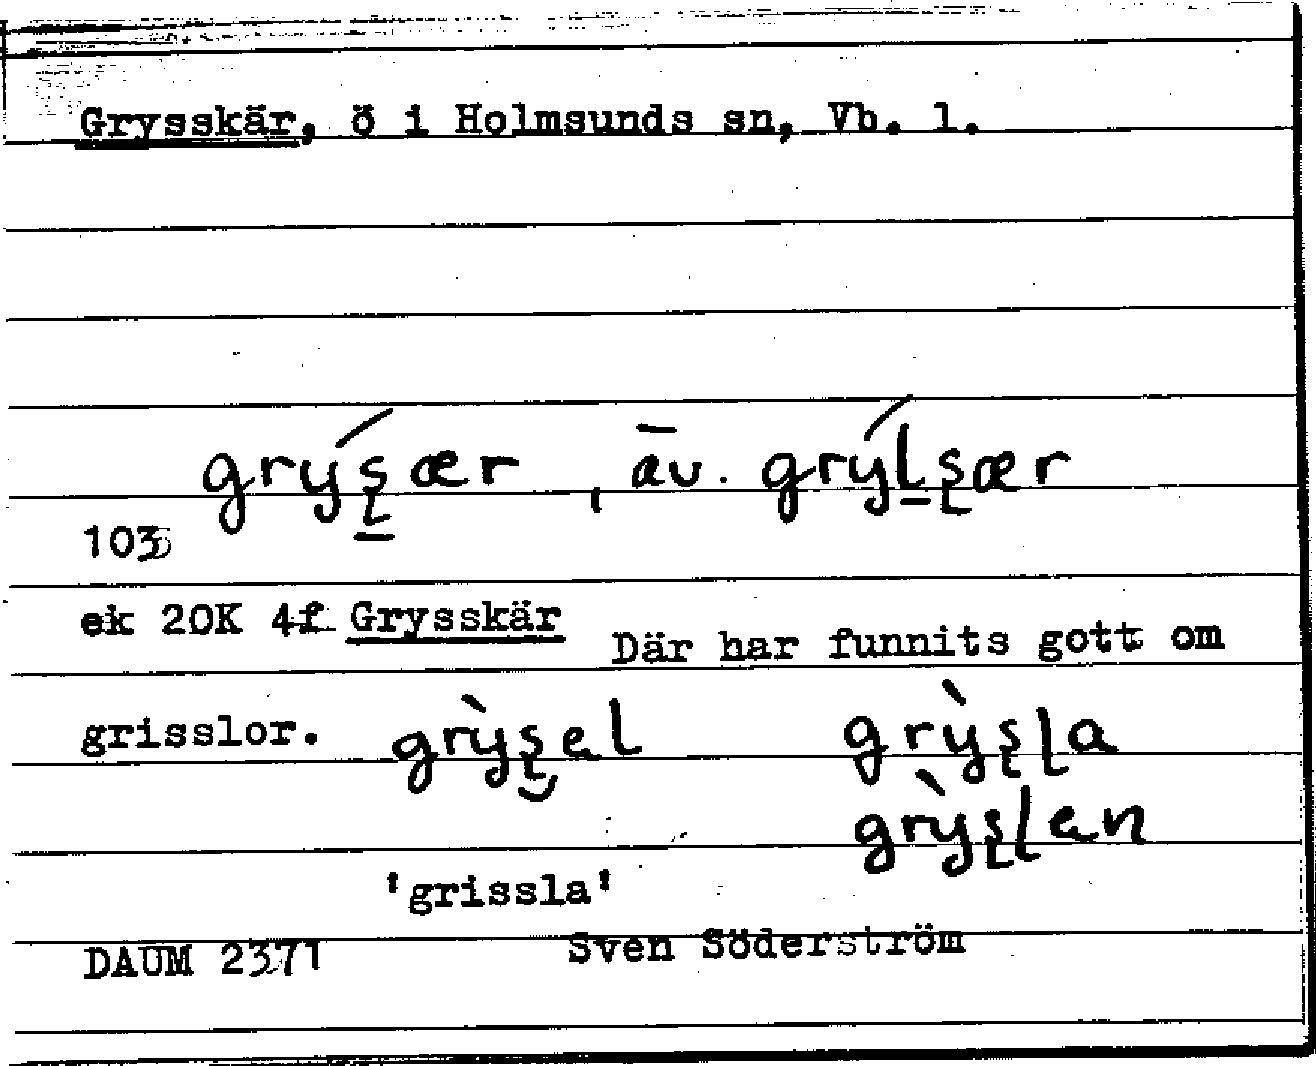 Grysskär, ö i Holmsunds sn, Vb. l.
grýʂær, āv. grýḻʂær
103
ek 20K 4f Grysskär Där har funnits gott om
grisslor. grỳʂel grỳʂɭa
grỳʂɭen
'grissla'
DAUM 2371 Sven Söderström